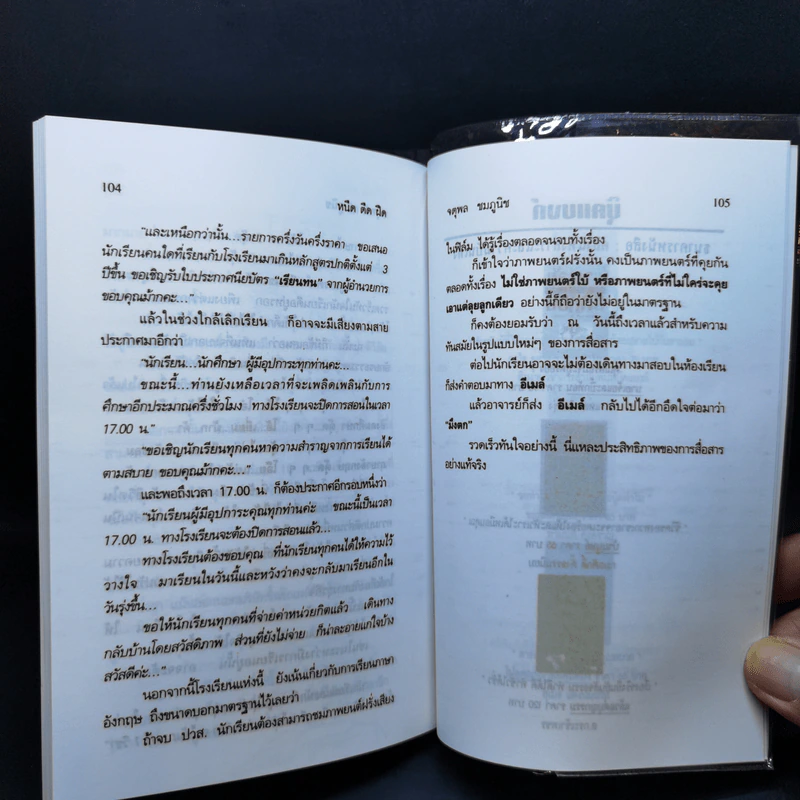 104
หนีด ตืด ฝืด
"และเหนือกว่านั้น...รายการครึ่งวันครึ่งราคา ขอเสนอ
นักเรียนคนใดที่เรียนกับโรงเรียนมาเกินหลักสูตรปกติตั้งแต่ 3
ปีขึ้น ขอเชิญรับใบประกาศนียบัตร "เรียนทน" จากผู้อำนวยการ
ขอบคุณม้ากคะ..."
แล้วในช่วงใกล้เลิกเรียน ก็อาจจะมีเสียงตามสาย
ประกาศมาอีกว่า
"นักเรียน...นักศึกษา ผู้มีอุปการะทุกท่านคะ...
ขณะนี้...ท่านยังเหลือเวลาที่จะเพลิดเพลินกับการ
ศึกษาอีกประมาณครึ่งชั่วโมง ทางโรงเรียนจะปิดการสอนในเวลา
17.00 น."
"ขอเชิญนักเรียนทุกคนหาความสำราญจากการเรียนได้
ตามสบาย ขอบคุณม้ากคะ..."
และพอถึงเวลา 17.00 น. ก็ต้องประกาศอีกรอบหนึ่งว่า
"นักเรียนผู้มีอุปการะคุณทุกท่านค่ะ ขณะนี้เป็นเวลา
17.00 น. ทางโรงเรียนจะต้องปิดการสอนแล้ว...
ทางโรงเรียนต้องขอบคุณ ที่นักเรียนทุกคนได้ให้ความไว้
วางใจ มาเรียนในวันนี้และหวังว่าคงจะกลับมาเรียนอีกใน
วันรุ่งขึ้น...
ขอให้นักเรียนทุกคนที่จ่ายค่าหน่วยกิตแล้ว เดินทาง
กลับบ้านโดยสวัสดิภาพ ส่วนที่ยังไม่จ่าย ก็น่าละอายแก่ใจบ้าง
สวัสดีค่ะ..."
นอกจากนี้โรงเรียนแห่งนี้ ยังเน้นเกี่ยวกับการเรียนภาษา
อังกฤษ ถึงขนาดบอกมาตรฐานไว้เลยว่า
ถ้าจบ ปวส. นักเรียนต้องสามารถชมภาพยนต์ฝรั่งเสียง
จตุพล ชมภูนิช
105
ในฟิล์ม ได้รู้เรื่องตลอดจนจบทั้งเรื่อง
ก็เข้าใจว่าภาพยนตร์ฝรั่งนั้น คงเป็นภาพยนตร์ที่คุยกัน
ตลอดทั้งเรื่อง ไม่ใช่ภาพยนตร์ใบ้ หรือภาพยนตร์ที่ไม่ใคร่จะคุย
เอาแต่ลุยลูกเดียว อย่างนี้ก็ถือว่ายังไม่อยู่ในมาตรฐาน
ก็คงต้องยอมรับว่า ณ วันนี้ถึงเวลาแล้วสำหรับความ
ทันสมัยในรูปแบบใหม่ๆ ของการสื่อสาร
ต่อไปนักเรียนอาจจะไม่ต้องเดินทางมาสอบในห้องเรียน
ก็ส่งคำตอบมาทาง อีเมล์
แล้วอาจารย์ก็ส่ง อีเมล์ กลับไปได้อีกอึดใจต่อมาว่า
"มึงตก"
รวดเร็วทันใจอย่างนี้ นี่แหละประสิทธิภาพของการสื่อสาร
อย่างแท้จริง